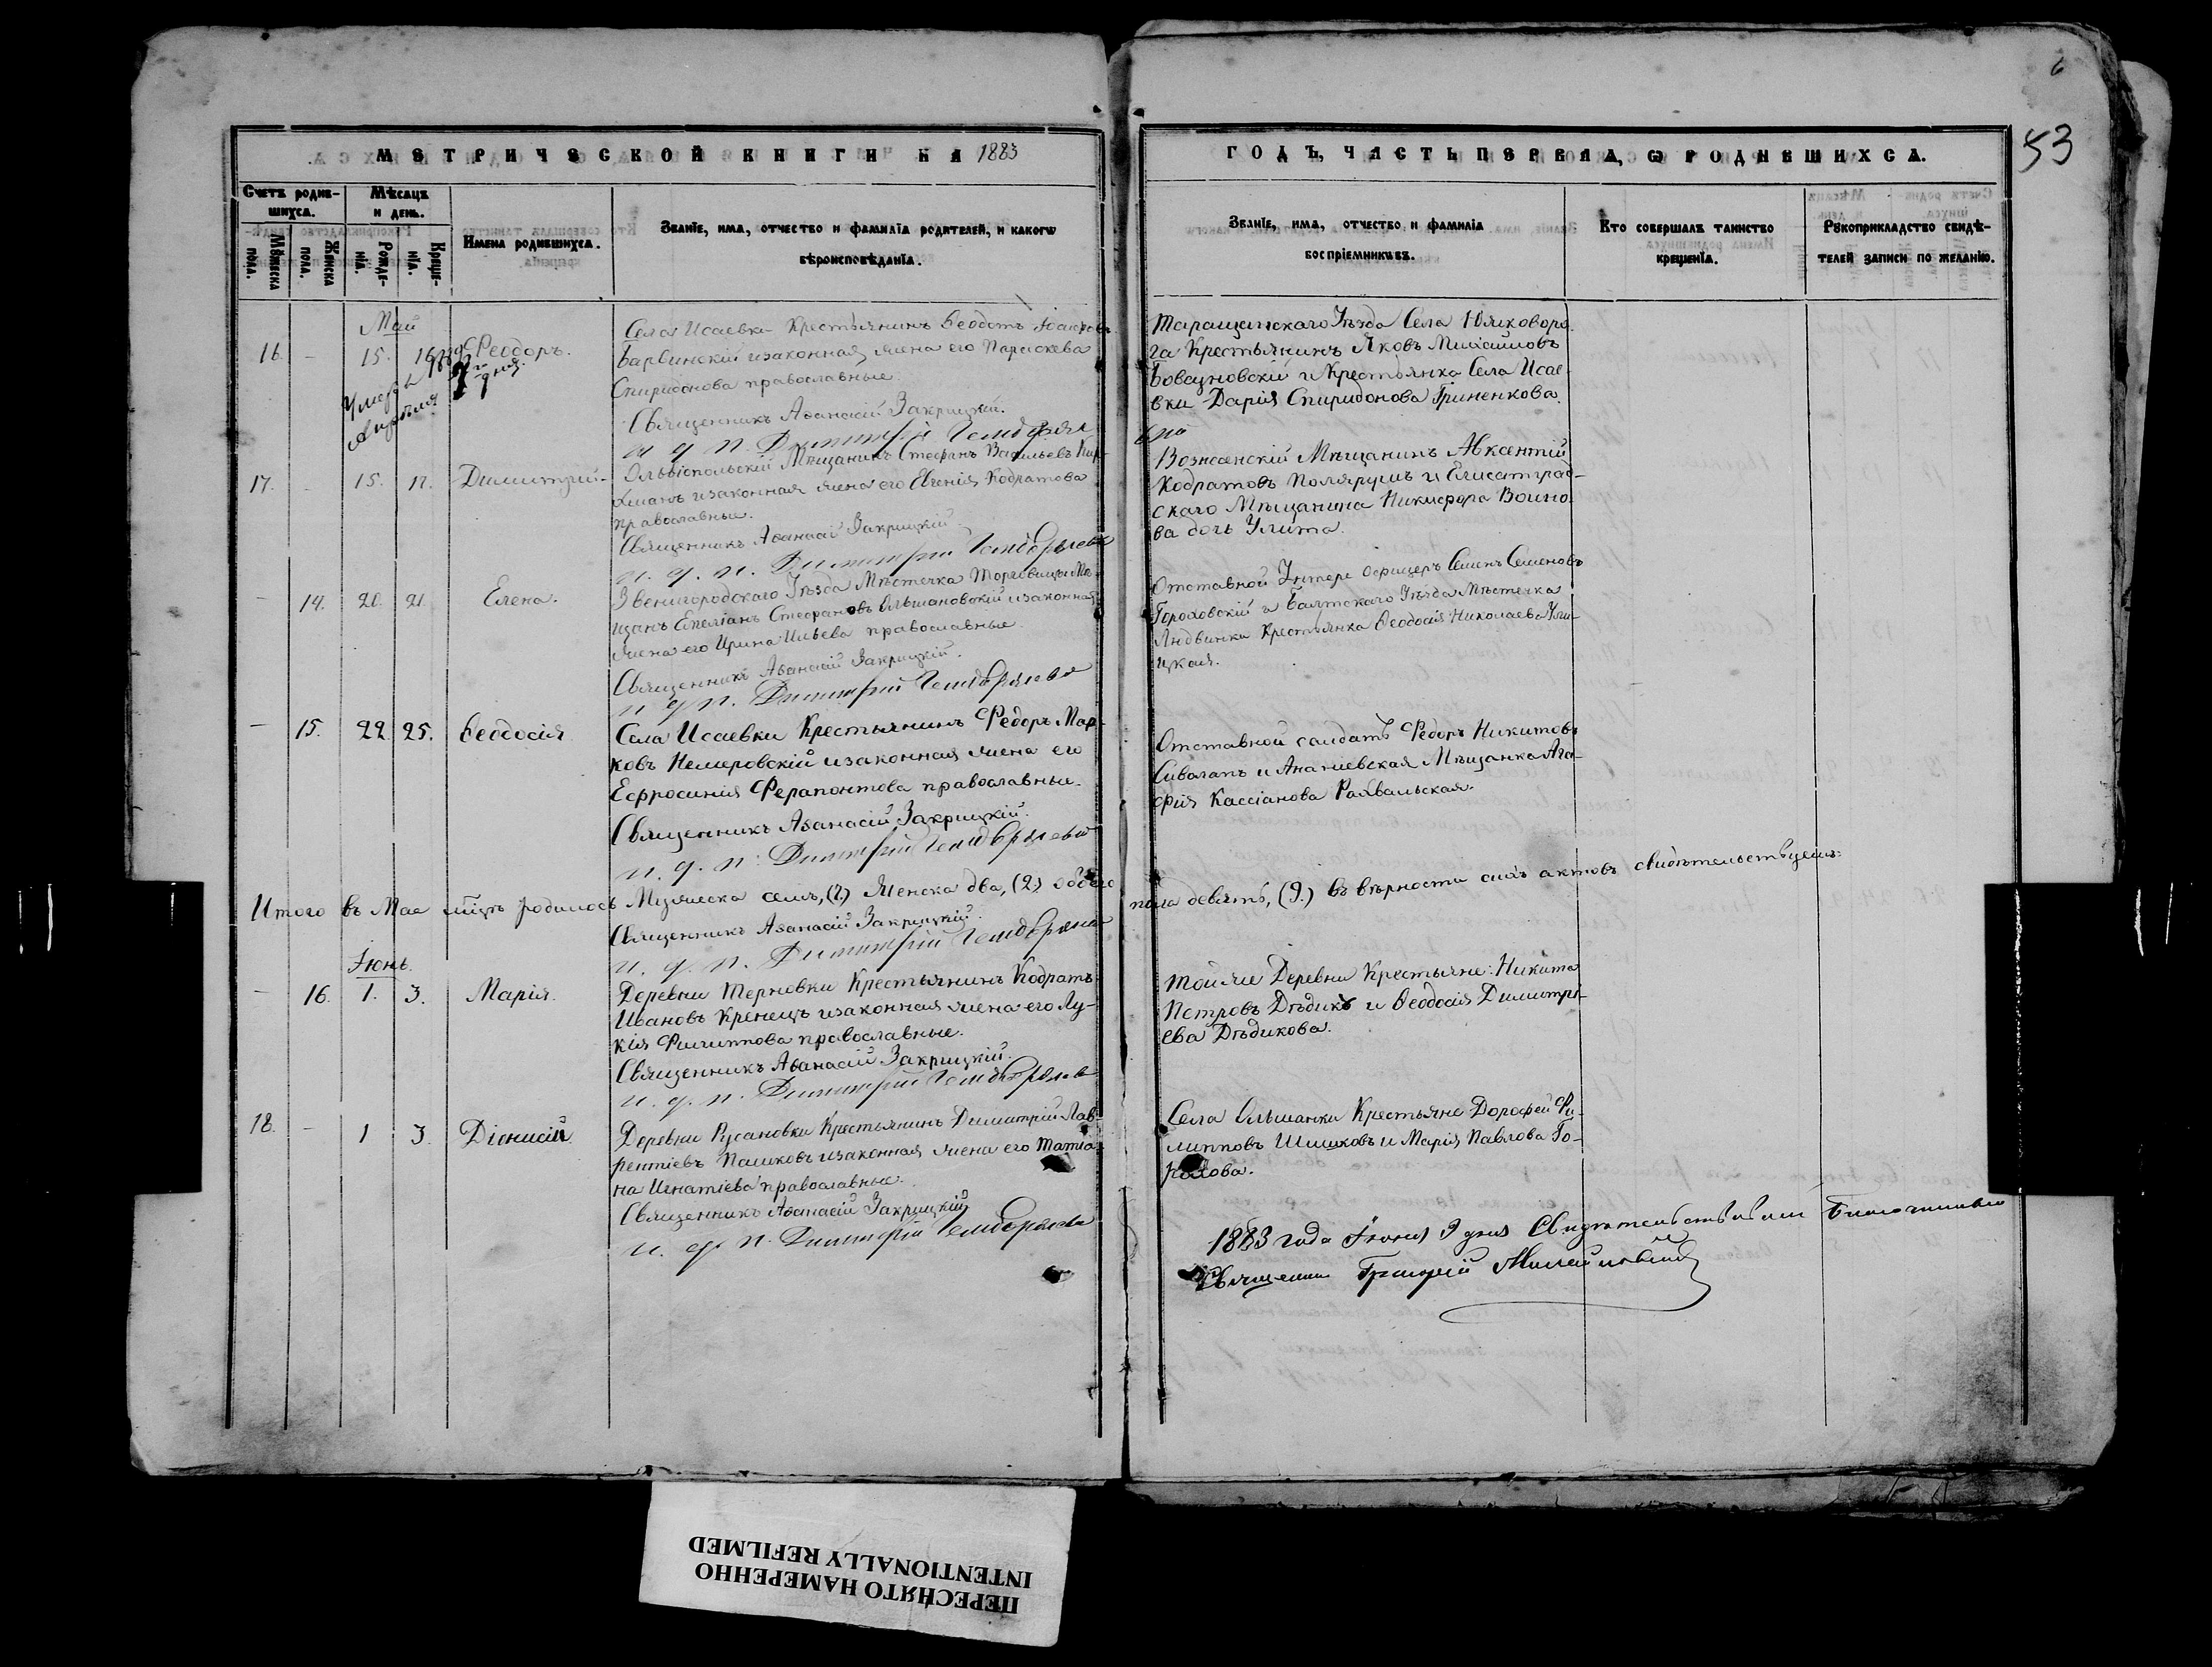 6
53
МЕТРИЧЕСКОЙ КНИГИ НА 1883
ГОДЪ, ЧАСТЬ ПЕРВАЯ, Ѡ РОДИВШИХСЯ.
Счетъ родив-
шихся.
Мѣсяцъ
и день.
Мꙋжеска
пола.
Женска
пола.
Рожде-
нїя.
Креще-
нїя.
Имена родившихся.
Званїе, имя, отчество и фамилїя родителей, и какогѡ
вѣроисповѣданїя.
Званїе, имя, отчество и фамилїя
воспрїемникѡвъ.
Кто совершалъ таинство
крещенїя.
Рꙋкоприкладство свидѣ-
телей записи по желанїю.
Май
16. – 15. 16 Феодоръ.
Умеръ
Апрѣля
дня.
Села Исаевки Крестьянинъ Ѳеодотъ
Барвинскій изаконная жена его Параскева
Спиридонова православные.
Священникъ Аѳанасій Закрицкій.
и. д. п. Димитрій
Таращанскаго Уѣзда Села
га Крестьянинъ Яковъ Михаиловъ
и Крестьянка Села Исае-
вки Дарія Спиридонова Гриненкова.
17. – 15. 17. Димитрій
Ольвіопольскій Мѣщанинъ Стефанъ Васильевъ
изаконная жена его Евгенія Кодратова
православные.
Священникъ Аѳанасій Закрицкій.
и. д. п. Димитрій
Вознесенскій Мѣщанинъ Авксентій
Кодратовъ и Елисатград-
скаго Мѣщанина Никифора Воино-
ва дочь Улита.
– 14. 20. 21. Елена.
Звенигородскаго Уѣзда Мѣстечка Торговицы Мѣ-
щанъ Стефановъ Ольшановскій изаконная
жена его Ирина Ильева православные.
Священникъ Аѳанасій Закрицкій.
и. д. п. Димитрій
Отставной Унтеръ Офицеръ Семенъ Семеновъ
Гороховскій и Балтскаго Уѣзда Мѣстечка
Крестьянка Ѳеодосія Николаева
цкая.
– 15. 22. 25. Ѳеодосія
Села Исаевки Крестьянинъ Федоръ Мар-
ковъ Немеровскій изаконная жена его
Ефросинія Ферапонтова православные.
Священникъ Аѳанасій Закрицкій.
и. д. п. Димитрій
Отставной солдатъ Федоръ Никитовъ
и Ананіевская Мѣщанка Ага-
фія Кассіанова
Итого въ Маѣ мѣцѣ родилось Мужеска семь, (7.) Женска два, (2.) обоего
пола девять, (9.) въ вѣрности сихъ актовъ свидѣтельствуемъ:
Священникъ Аѳанасій Закрицкій.
и. д. п. Димитрій
Іюнь.
– 16. 1. 3. Марія.
Деревни Терновки Крестьянинъ Кодратъ
Ивановъ Кренецъ изаконная жена его Лу-
кія Филиппова православные.
Священникъ Аѳанасій Закрицкій.
и. д. п. Димитрій
тойже Деревни Крестьяне: Никита
Петровъ Дѣдикъ и Ѳеодосія Димитрі-
ева Дѣдикова.
18. – 1 3. Діонисій.
Деревни Русановки Крестьянинъ Димитрій Лав-
рентіевъ Пашковъ изаконная жена его Татіа-
на Игнатіева православные.
Священникъ Аѳанасій Закрицкій
и. д. п. Димитрій
Села Ольшанки Крестьяне Дорофей Фи-
липповъ Шишковъ и Марія Павлова
1883 года Іюня 9 дня Свидетельствовалъ Благочинный
Священникъ Григорій
ПЕРЕСНЯТО НАМЕРЕННО
INTENTIONALLY REFILMED